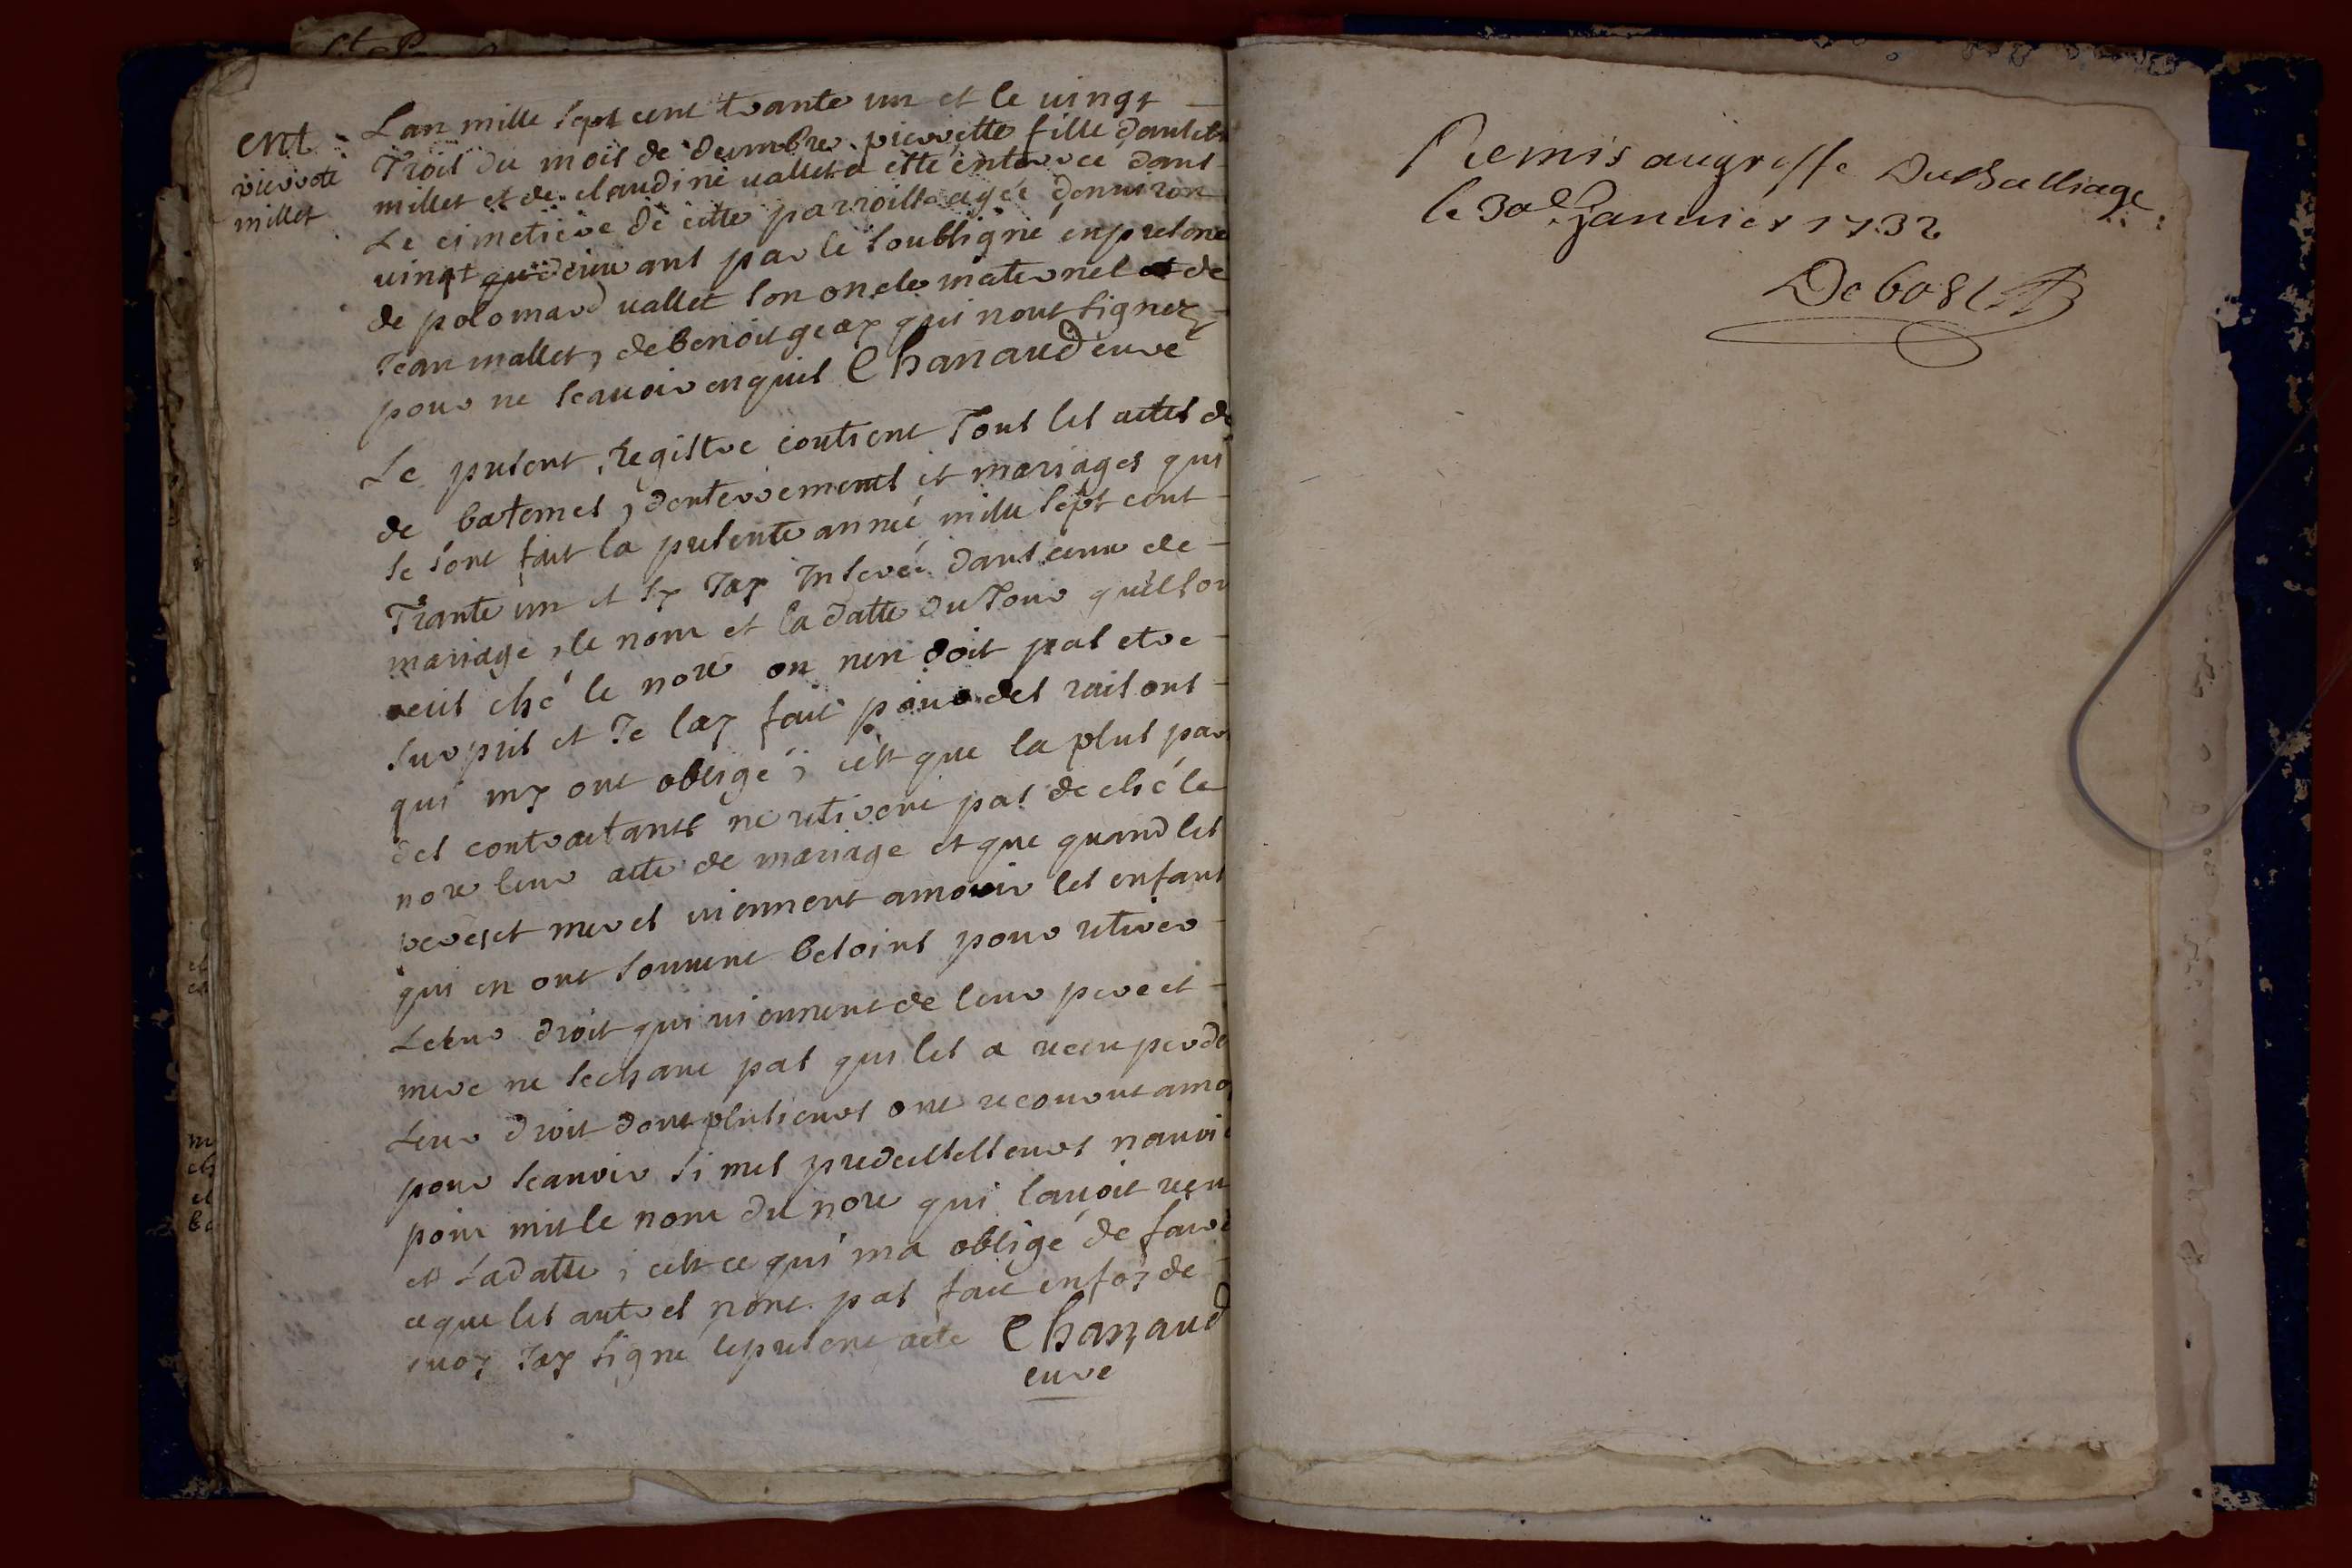 ent
pierrote
millet
Lan mille sept cent trante un et le vingt
Trois du mois de decembre pierrette fille
millet et de claudine vallet a etté enterrée dans
Le cimetiere de cette parroisse agée denuiron
uingt ans par le soubsigné en presence
de vallet son oncle maternel et de
Jean mallet, de benoit geay qui nont signez
pour ne scauoir enquis Chanaud curé
Le present Registre contient Tous les actes de
de batemes, denterrements et mariages qui
se sont fait la presente année mille sept cent
Trante un et sy Jay Inseré dans ceux de
mariage, le nom et la datte du Jour quils on
ché le nore on nen doit pas etre
surpris et Je lay fait pour des raisons
qui my ont obligé, cest que la plus par
des contractants ne retirent pas de ché le
nore leur acte de mariage et que quand les
peres et meres uiennent amourir les enfans
qui en ont souuent besoins pour retirer
Leur droit qui uiennent de leur pere et
mere ne scchant pas qui les a receu perde
Leur droit dont plusieurs ont recourut amo
pour scauoir si mes predecessesseurs nauoi
poin mis le nom du nore qui lauoit reçu
et Ladatte, cest ce qui ma obligé de faire
ce que les autres nont pas fait en foy de
quoy Jay signé le present acte Chanaud
curé
Remis augreffe Du Balliage
le 30e Januier 1732
Debost